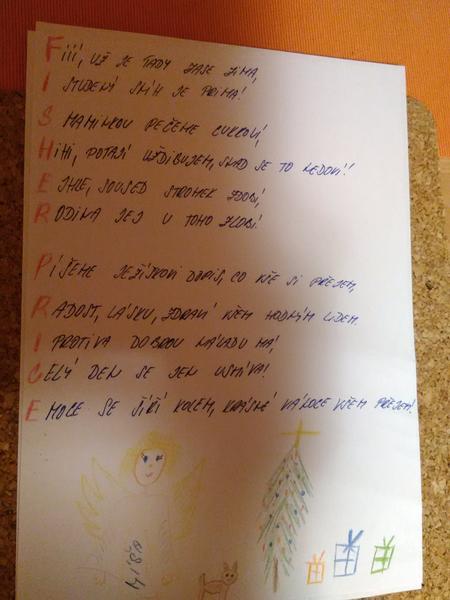 Fííí, už je tady zase zima,
I studený sníh je príma!
S maminkou pečeme cukroví,
Hihi, potají uždibujem, snad se to nedoví!
Ejhle, soused stromek zdobí,
Rodina jej u toho zlobí.
Píšeme Ježíškovi dopis, co vše si přejem,
Radost, lásku, zdraví všem hodným lidem.
I protiva dobrou náladu má,
Celý den se jen usmívá!
Emoce se šíří kolem, krásné Vánoce všem přejem!
Míša